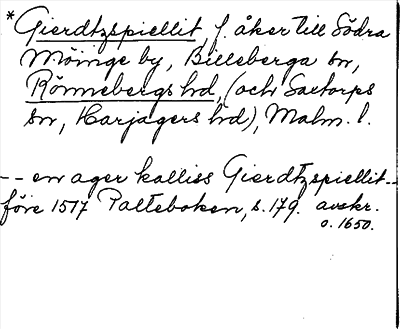 *Gierdtzspiellit, f. åker till Södra
Möinge by, Billeberga sn,
Rönnebergs hd, (och Saxtorps
sn, Harjagers hd), Malm. l.
-- en ager kalliss Gierdtzspiellit --
före 1517 Palteboken, s. 179. avskr.
o. 1650.